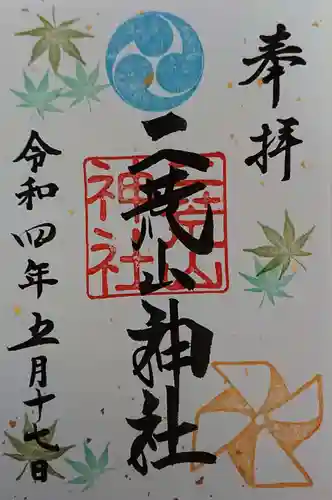 奉拝
二荒山神社
神社
令和四年五月十七日